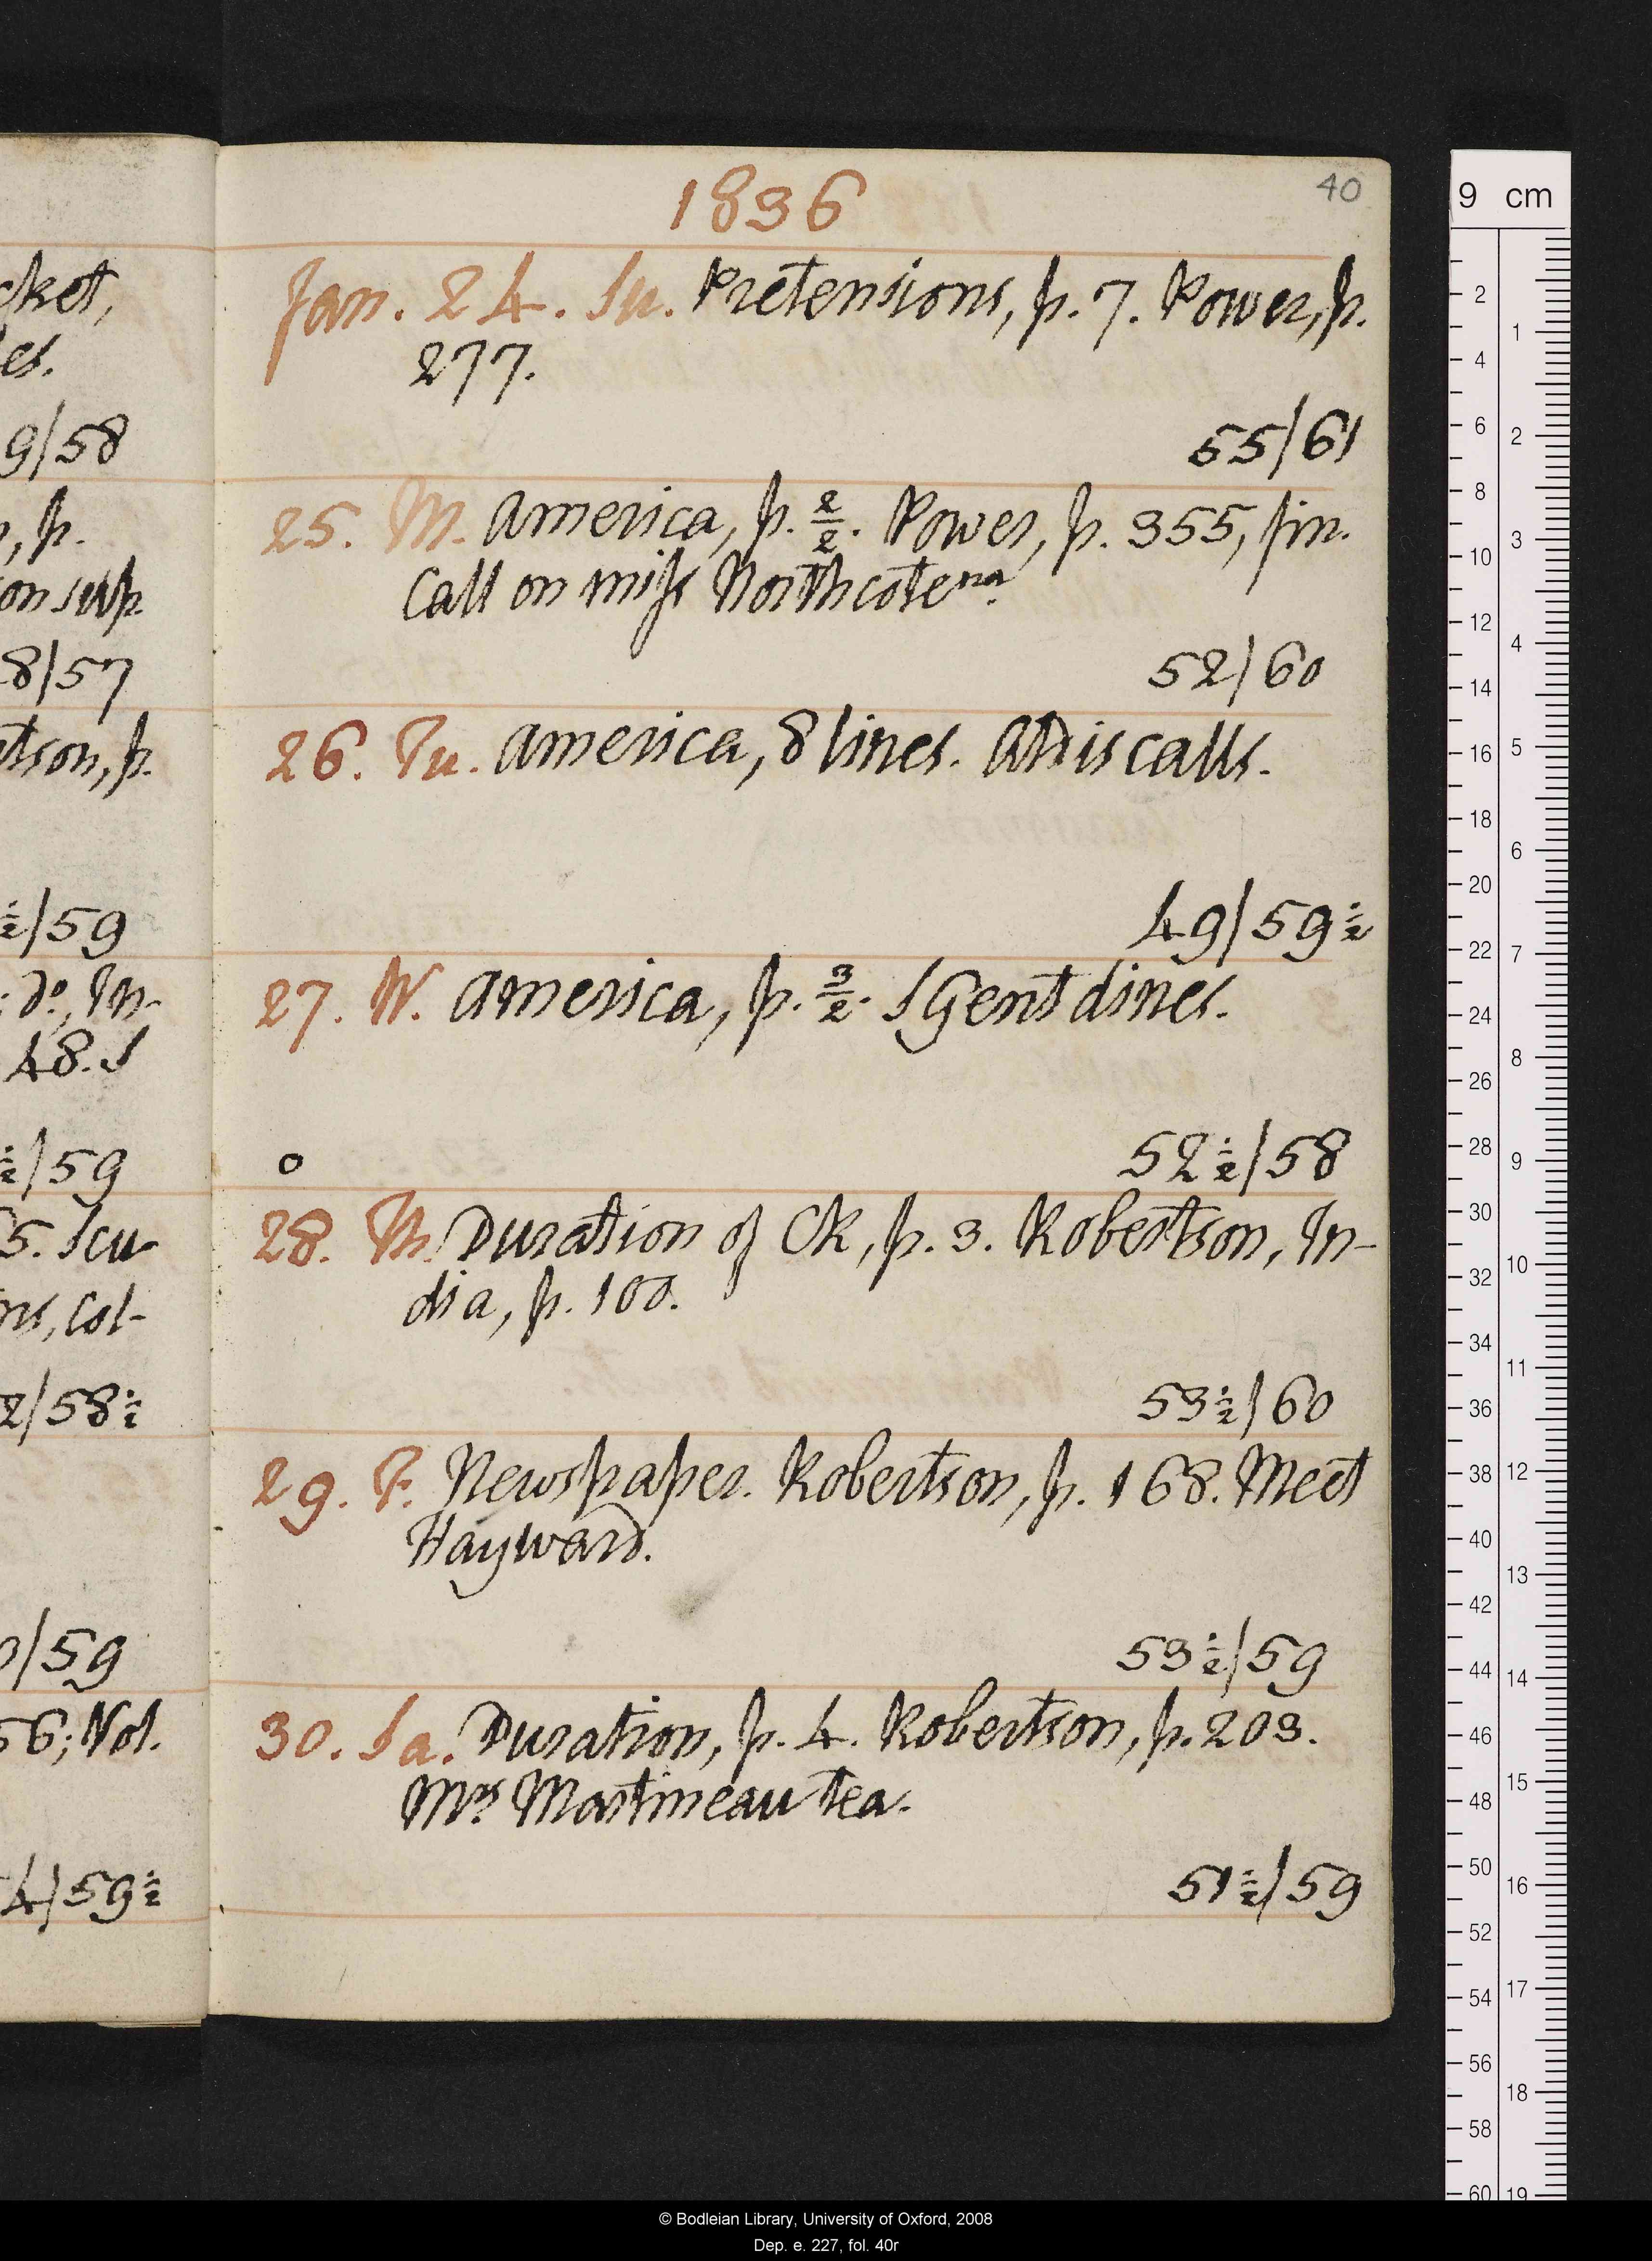 1836
40
Jan. 24. Su. Pretensions, p. 7. Power, p.
277.
55/61
25. M. America, p. 2/2. Power, p. 355, fin.
Call on Miss Northcote na.
52/60
26. Tu. America, 8 lines. Adis calls.
49/59½
27. W. America, p. 3/2. S Gent dines.
o
52½/58
28. Th. Duration of Ch, p. 3. Robertson, In-
dia, p. 100.
53½/60
29. F. Newspaper. Robertson, p. 168. Meet
Hayward.
53½/59
30. Sa. Duration, p. 4. Robertson, p. 203.
Mrs Martineau tea.
51½/59
cket,
es.
9/58
, p.
on sup
8/57
tson, p.
½/59
do, In-
48. S
½/59
5. Scu
ns, col-
2/58½
/59
56; Vol.
4/59½
9 cm
2
4
6
8
10
12
14
16
18
20
22
24
26
28
30
32
34
36
38
40
42
44
46
48
50
52
54
56
58
60
1
2
3
4
5
6
7
8
9
10
11
12
13
14
15
16
17
18
19
© Bodleian Library, University of Oxford, 2008
Dep. e. 227, fol. 40r